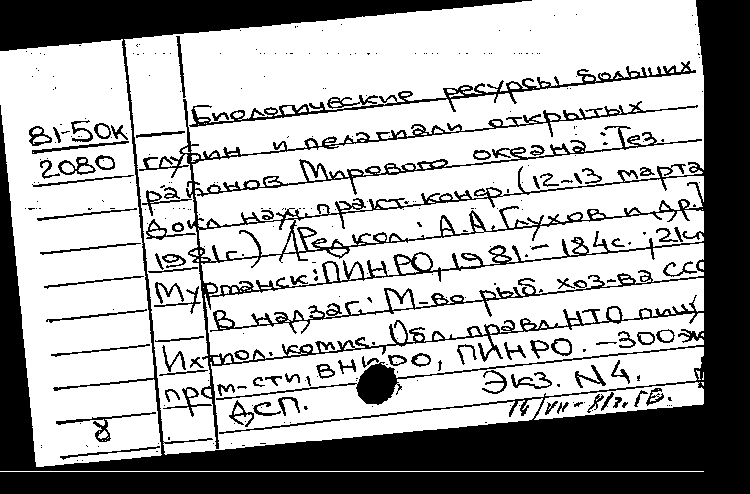 Биологические ресурсы больших
81-50к
2080
глубин и пелагиали открытых
районов Мирового океана : Тез.
докл. науч. практ. конф. (12-13 марта
1981г.) / [Редкол.: А.А. Глухов и др.]
Мурманск: ПИНРО, 1981. - 184с. ; 21см
В надзаг.: М-во рыб. хоз-ва ССС
Ихтиол. комис., Обл. правл. НТО пищ.
пром-сти, ВНИРО, ПИНРО. - 300эк
ДСП. Экз. N4.
8
14/VII-81г.